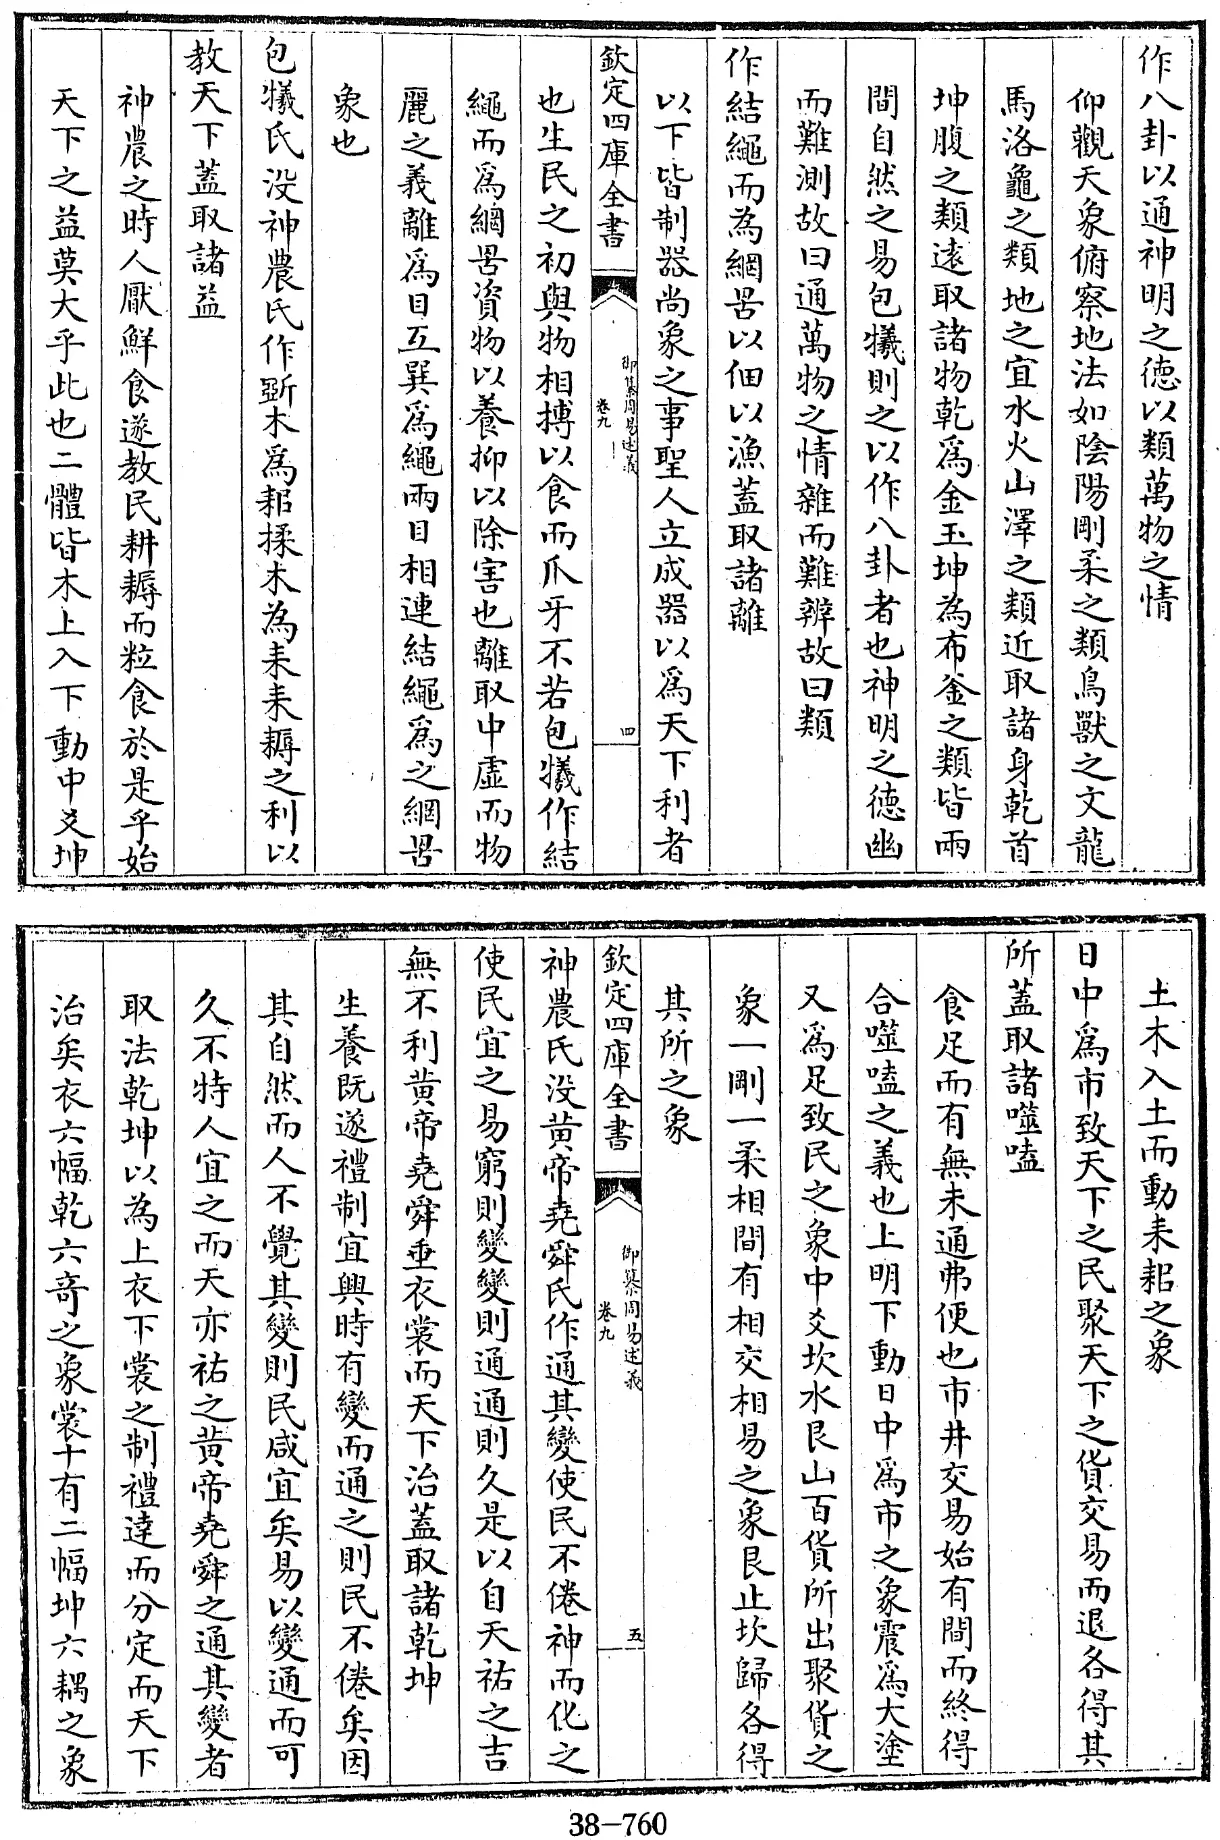 作八卦以通神明之德以類萬物之情
仰觀天象俯察地法如陰陽剛柔之類鳥獸之文龍
馬洛龜之類地之宜水火山澤之類近取諸身乾首
坤腹之類遠取諸物乾爲金玉坤為布釜之類皆兩
間自然之易包犧則之以作八卦者也神明之德幽
而難測故曰通萬物之情雜而難辨故曰類
作結繩而為網罟以佃以漁蓋取諸離
以下皆制器尚象之事聖人立成器以爲天下利者
欽定四庫全書
御纂周易述義
卷九
四
也生民之初與物相搏以食而爪牙不若包犧作結
繩而爲網罟資物以養抑以除害也離取中虛而物
麗之義離爲目互巽爲繩兩目相連結繩爲之網罟
象也
包犧氏没神農氏作斲木爲耜揉木為耒耒耨之利以
教天下蓋取諸益
神農之時人厭鮮食遂教民耕耨而粒食於是乎始
天下之益莫大乎此也二體皆木上入下動中爻坤
土木入土而動耒耜之象
日中爲市致天下之民聚天下之貨交易而退各得其
所蓋取諸噬嗑
食足而有無未通弗便也市井交易始有間而終得
合噬嗑之義也上明下動日中爲市之象震爲大塗
又爲足致民之象中爻坎水艮山百貨所出聚貨之
象一剛一柔相間有相交相易之象艮止坎歸各得
其所之象
欽定四庫全書
御纂周易述義
卷九
五
神農氏没黄帝堯舜氏作通其變使民不倦神而化之
使民宜之易窮則變變則通通則久是以自天祐之吉
無不利黄帝堯舜垂衣裳而天下治蓋取諸乾坤
生養既遂禮制宜興時有變而通之則民不倦矣因
其自然而人不覺其變則民咸宜矣易以變通而可
久不特人宜之而天亦祐之黄帝堯舜之通其變者
取法乾坤以為上衣下裳之制禮達而分定而天下
治矣衣六幅乾六奇之象裳十有二幅坤六耦之象
38-760